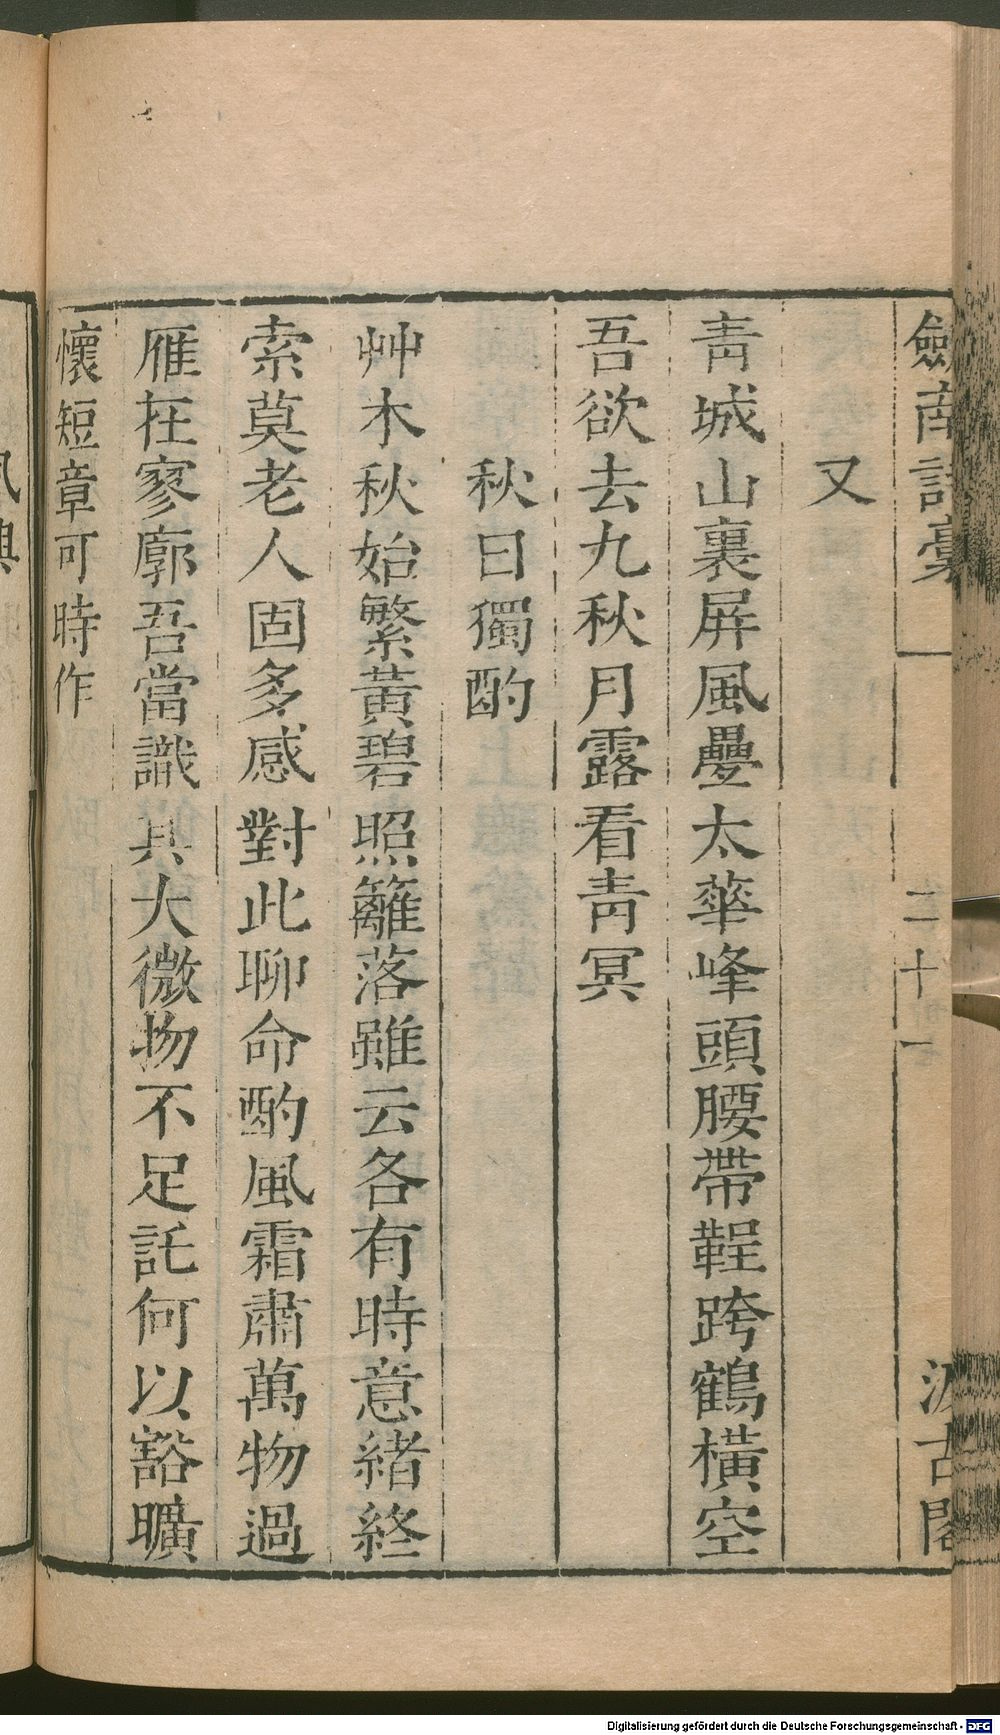 劒南詩稾
二十一
汲古閣
又
靑城山裏屏風疊太華峰頭腰帶鞓跨鶴橫空
吾欲去九秋月露看靑冥
秋日獨酌
艸木秋始繁黃碧照籬落雖云各有時意緖終
索莫老人固多感對此聊命酌風霜肅萬物過
雁在寥廓吾當識其大微物不足託何以豁曠
懷短章可時作
Digitalisierung gefördert durch die Deutsche Forschungsgemeinschaft - DFG